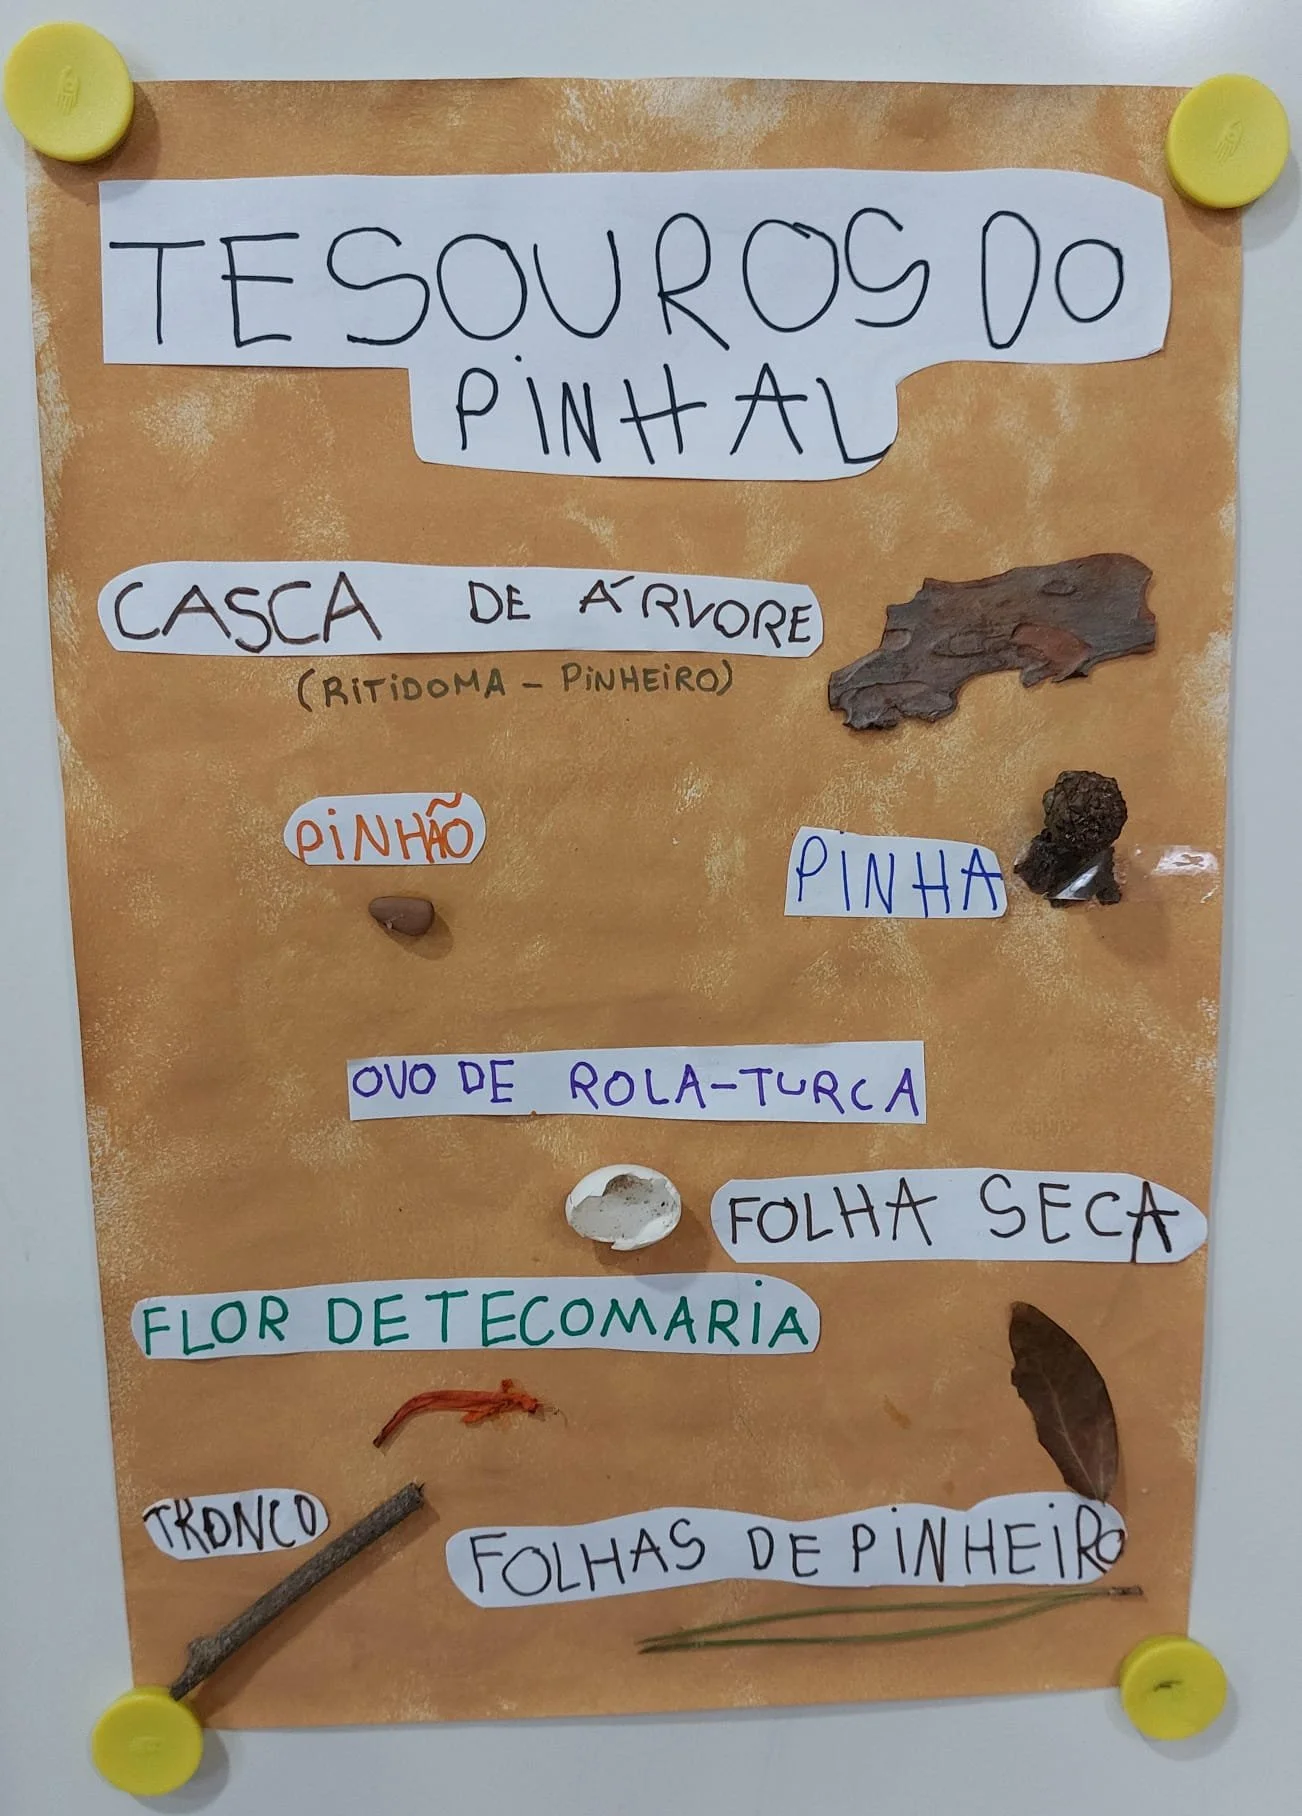 TESOUROS DO
PINHAL
CASCA DE ÁRVORE
(RITIDOMA - PINHEIRO)
PINHÃO
PINHA
OVO DE ROLA-TURCA
FOLHA SECA
FLOR DE TECOMARIA
TRONCO
FOLHAS DE PINHEIRO